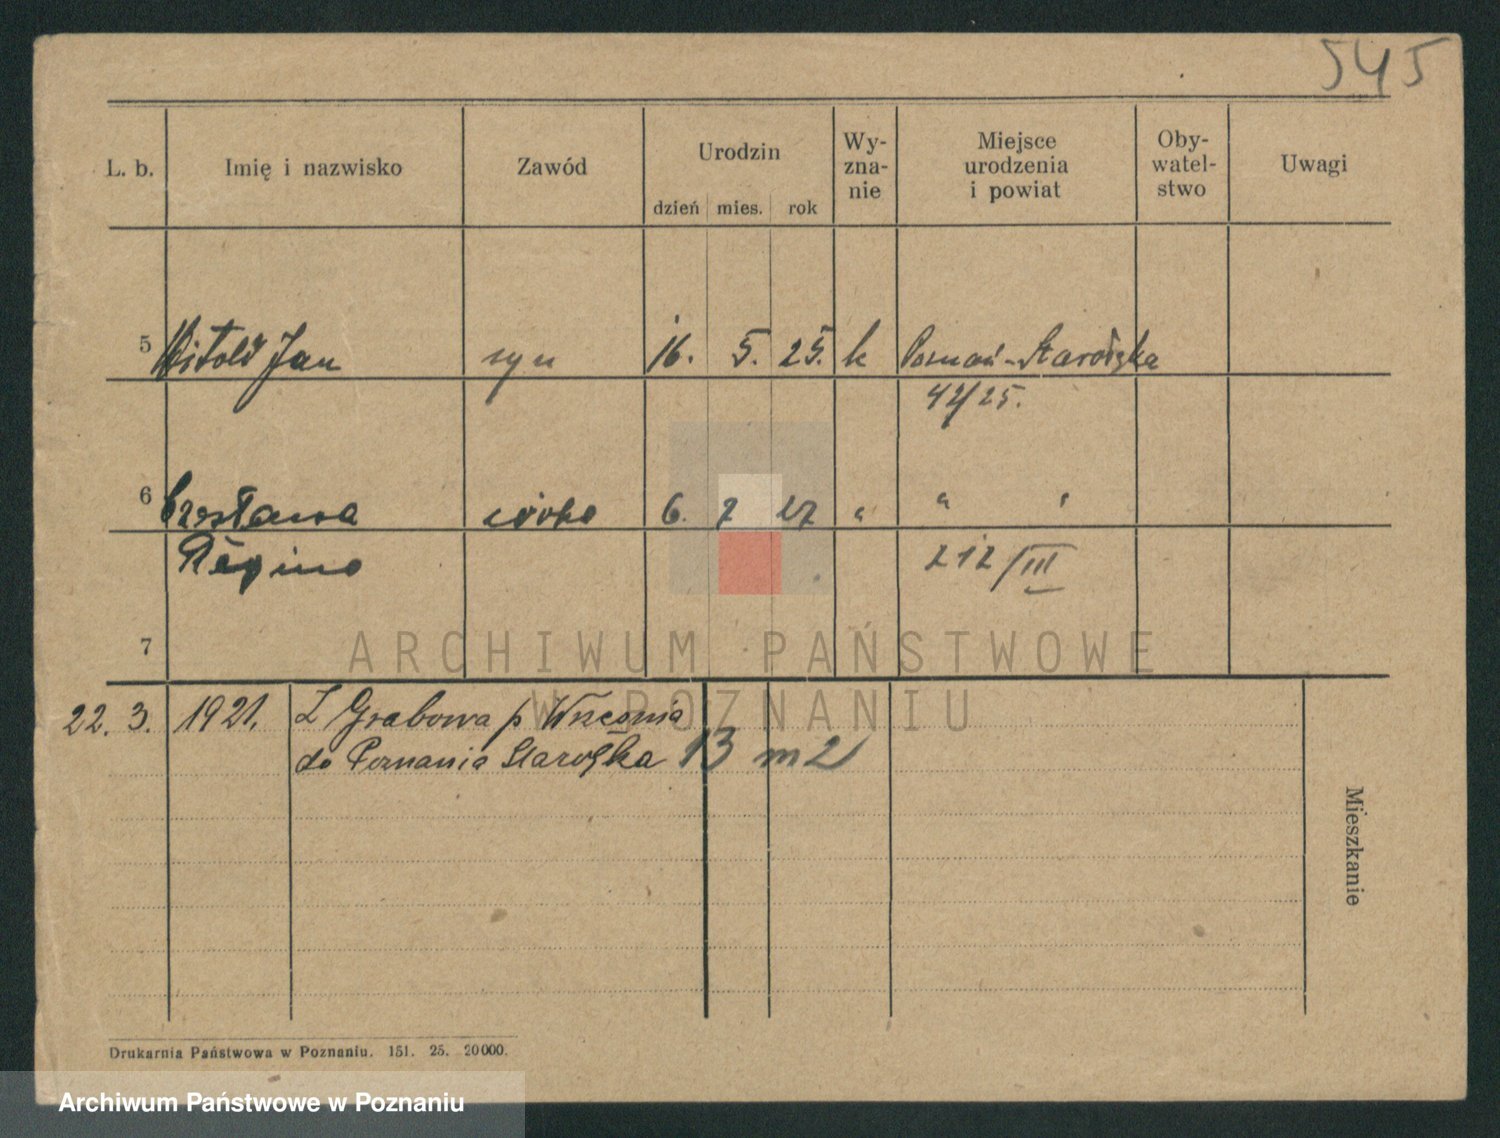 545
L. b. Imię i nazwisko Zawód Urodzin Wy-zna-nie Miejsce urodzenia i powiat Oby-watel-stwo Uwagi
dzień mies. rok
5 Witold Jan syn 16. 5. 25. k Poznań-Starołęka
42/25.
6 Czesława córka 6. 7 27 " " "
Regina 212/III
7
ARCHIWUM PAŃSTWOWE
W POZNANIU
22. 3. 1921. Z Grabowa p Września
do Poznania Starołęka 13 m 2
Mieszkanie
Drukarnia Państwowa w Poznaniu. 151. 25. 20000.
Archiwum Państwowe w Poznaniu